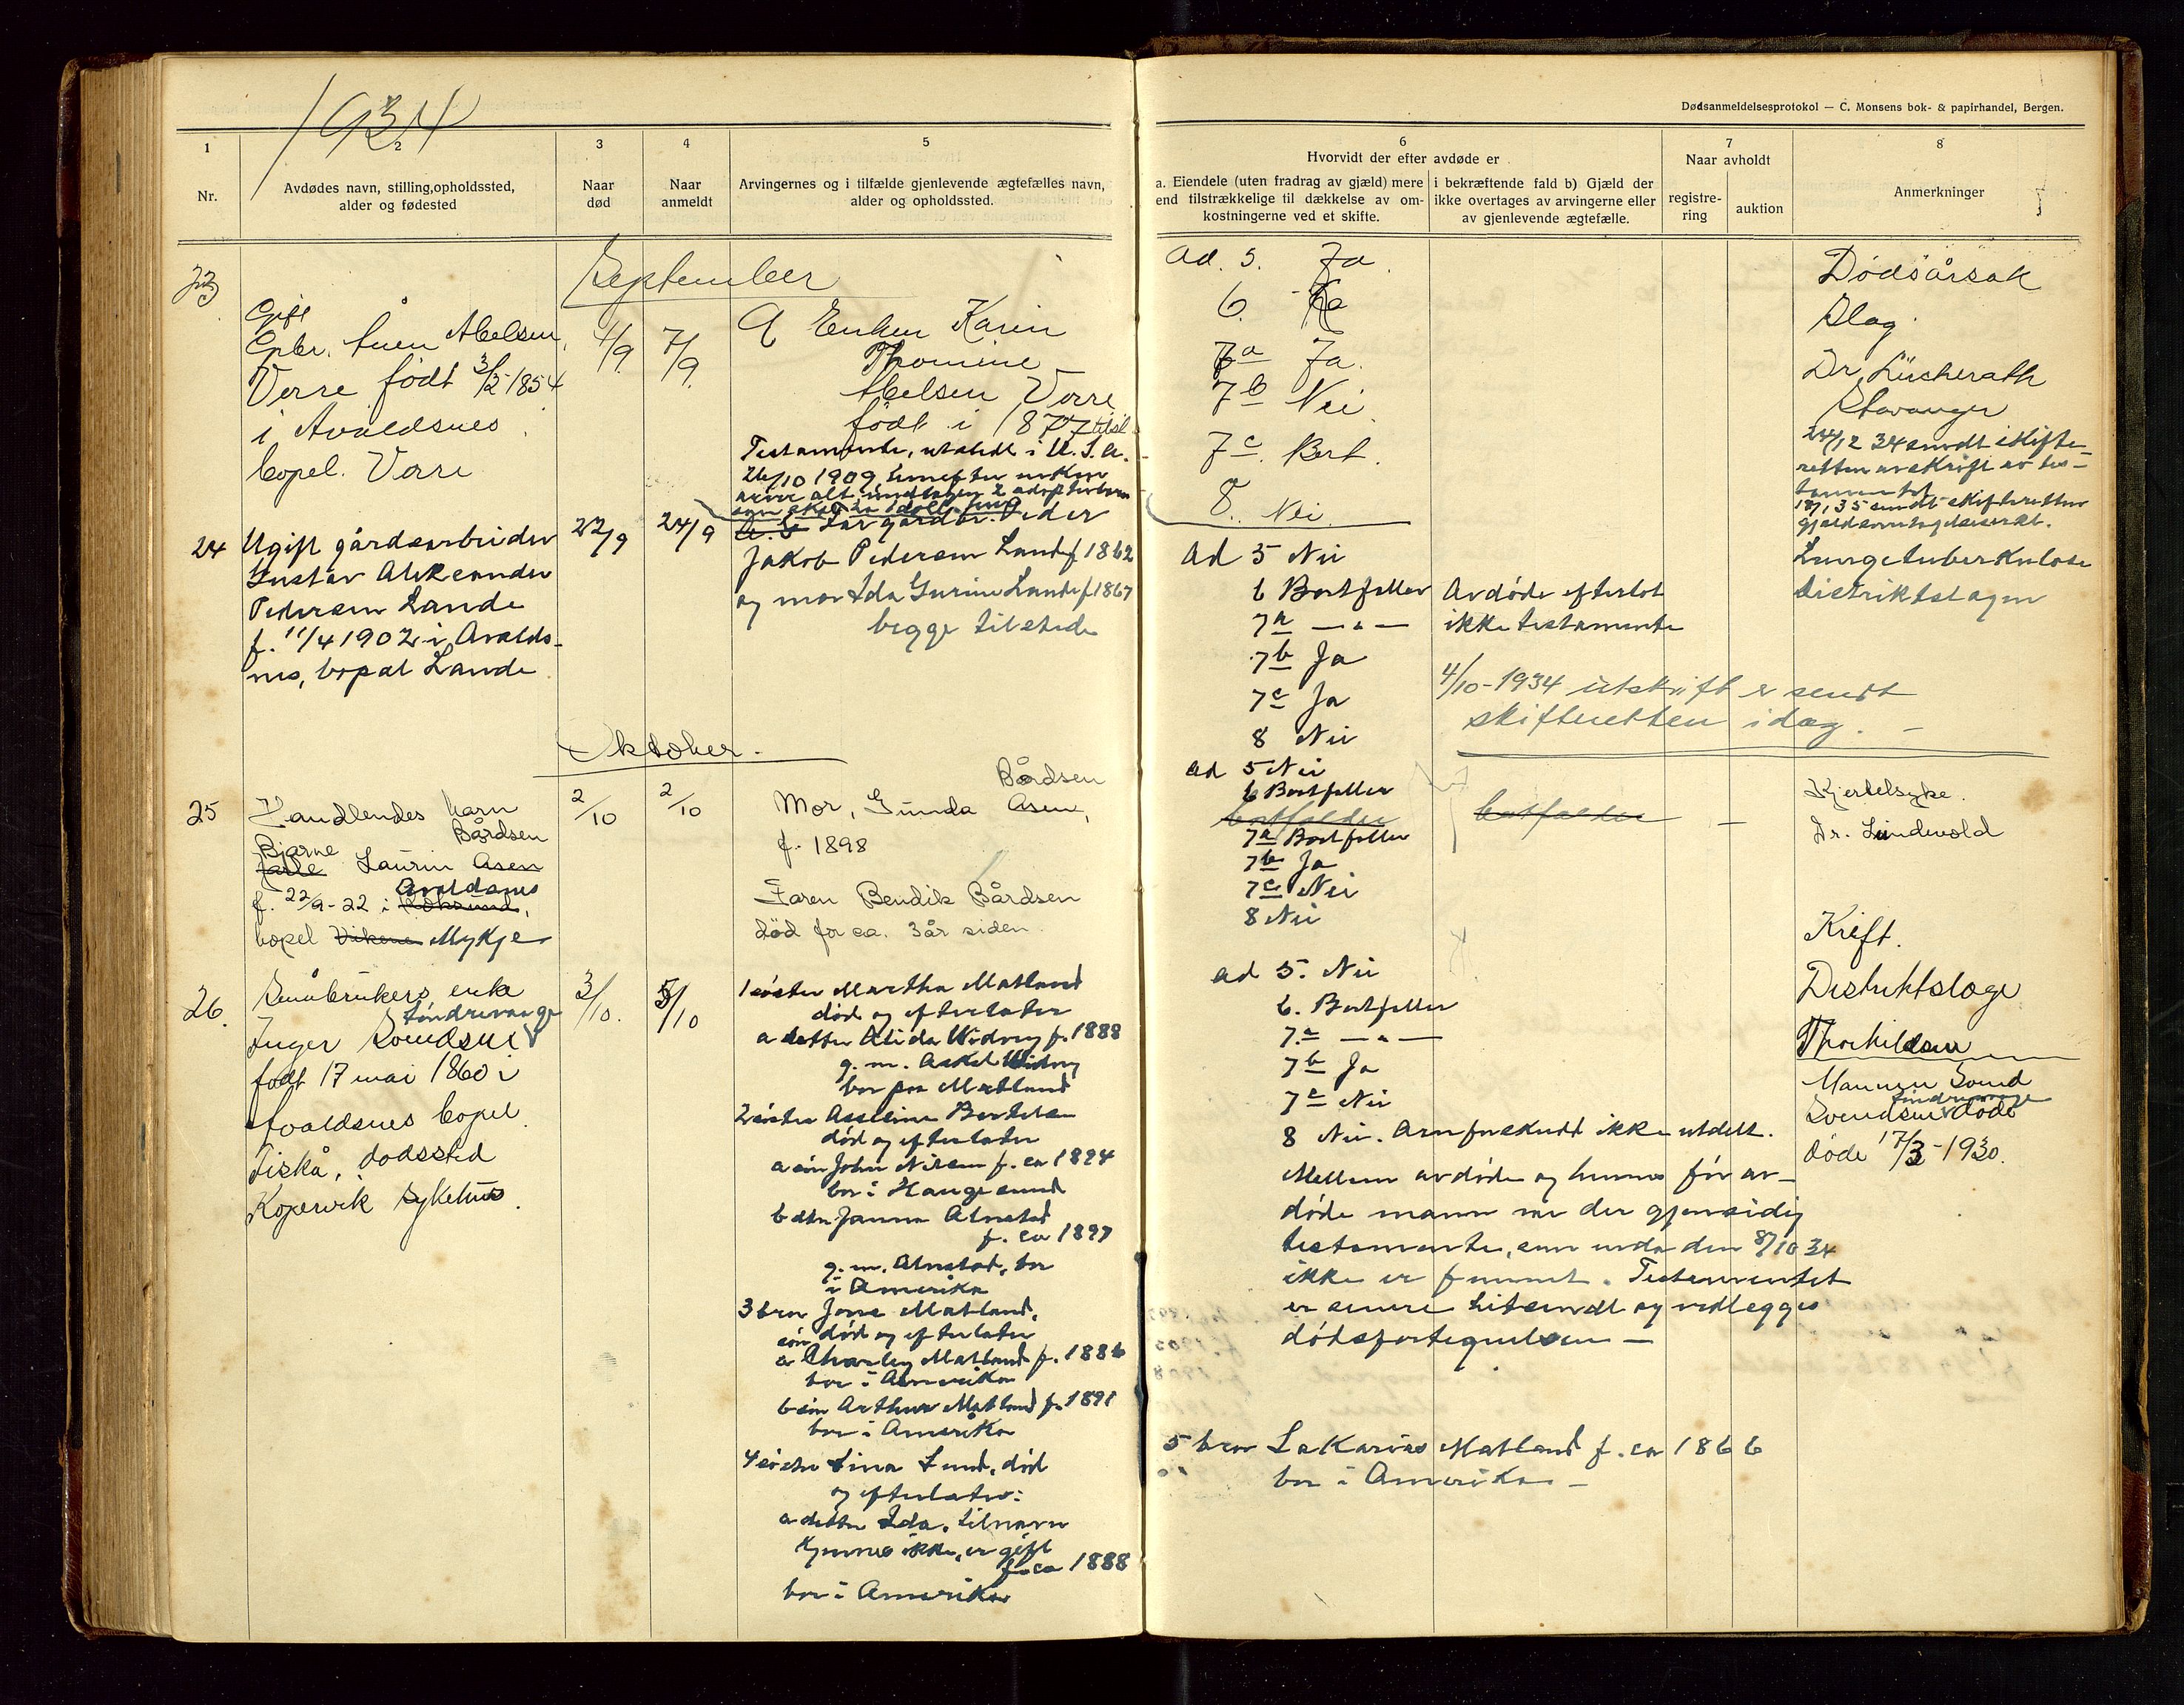 1934
Dødsanmeldelsesprotokol — C. Monsens bok- & papirhandel, Bergen.
1
Nr.
2
Avdødes navn, stilling, opholdssted,
alder og fødested
3
Naar
død
4
Naar
anmeldt
5
Arvingernes og i tilfælde gjenlevende ægtefælles navn,
alder og opholdssted.
6
Hvorvidt der efter avdøde er
a. Eiendele (uten fradrag av gjæld) mere
end tilstrækkelige til dækkelse av om-
kostningerne ved et skifte.
i bekræftende fald b) Gjæld der
ikke overtages av arvingerne eller
av gjenlevende ægtefælle.
7
Naar avholdt
registre-
ring
auktion
8
Anmerkninger
September
23
Gift
Gbr. Sven Abelsen,
Vorre født 3/5-1854
i Avaldsnes
bopel. Vorre
4/9
7/9
Enken Karin
Thomine
Abelsen Vorre
født i 1877
Testamente, utstedt i U.S.A.
26/10 1909 hvorefter enken
arver alt undtagen 2 adoptivbarn
som skal ha 1 doll. hver
ad. 5. Ja.
6. Ja
7a Ja.
7b Nei
7c. Bort.
8. Nei.
Dødsårsak
Slag.
Dr. Lücherath
Stavanger
24/12 34 sendt skifte-
retten avskrift av tes-
tamentet
18/1 35 sendt skifteretten
gjeldsovertagelseserkl.
24
Ugift gårdsarbeider
Gustav Aleksander
Pedersen Lande
f. 11/4 1902 i Avalds-
nes, bopæl Lande
22/9
24/9
Far gårdbr. Peder
Jakob Pedersen Lande f. 1862
og mor Ida Gurine Lande f. 1867
begge tilstede
Ad 5 Nei
6 Bortfaller
7a — " —
7b Ja
7c Ja
8 Nei
Avdøde efterlot
ikke testamente
4/10-1934 utskrift er sendt
skifteretten idag. —
Lungetuberkulose
Distriktslægen
Oktober.
25
Handlendes barn
Bjarne Bårdsen
Jarle Laurin Asen
Avaldsnes
f. 22/9-22 i Haugesund,
bopel Vikene Mykje
2/10
2/10
Bårdsen
Mor, Gunda Asen,
f. 1898
Faren Bendik Bårdsen
død for ca. 3 år siden.
ad 5 Nei
6 Bortfaller
bortfalder
7a Bortfaller
7b Ja
7c Nei
8 Nei
bortfalder —
Kjertelsyke.
Dr. Lindevold
26.
Småbrukers enke
Søndrevaage
Inger Svendsen
født 17 mai 1860 i
Avaldsnes bopel
Fiskå, dødssted
Kopervik sykehus.
3/10.
5/10
1 søster Martha Matland
død og efterlater
a datter Alida Widvey f. 1888
g. m. Askel Widvey
bor paa Matland
2 søster Asseline Bertelsen
død og efterlater
a søn John Nilsen f. ca 1894
bor i Haugesund
b dtr Janna Alnstad
f. ca 1897
g. m. Alnstad, bor
i Amerika
3 bror Jone Matland,
død og efterlater
søn
a Charley Matland f. 1886
bor i Amerika
b søn Arthur Matland f. 1891
bor i Amerika
4 søster Sina Lund, død
og efterlater:
a datter Ida, tilnavn
kjennes ikke, er gift
f. ca 1888
bor i Amerika
ad 5. Nei
6. Bortfaller
7.a — " —
7b Ja
7c Nei
8 Nei. Arveforskudd ikke utdelt.
Mellem avdøde og hennes før av-
døde mann var der gjensidig
testamente, som enda den 8/10 34
ikke er funnet. Testamentet
er senere hitsendt og vedlegges
dødsfortegnelsen —
5 bror Sakarias Matland f. ca 1866
bor i Amerika —
Kreft.
Distriktslæge
Thorkildsen
Mannen Svend
Søndrevaage
Svendsen døde
døde 17/3-1930.